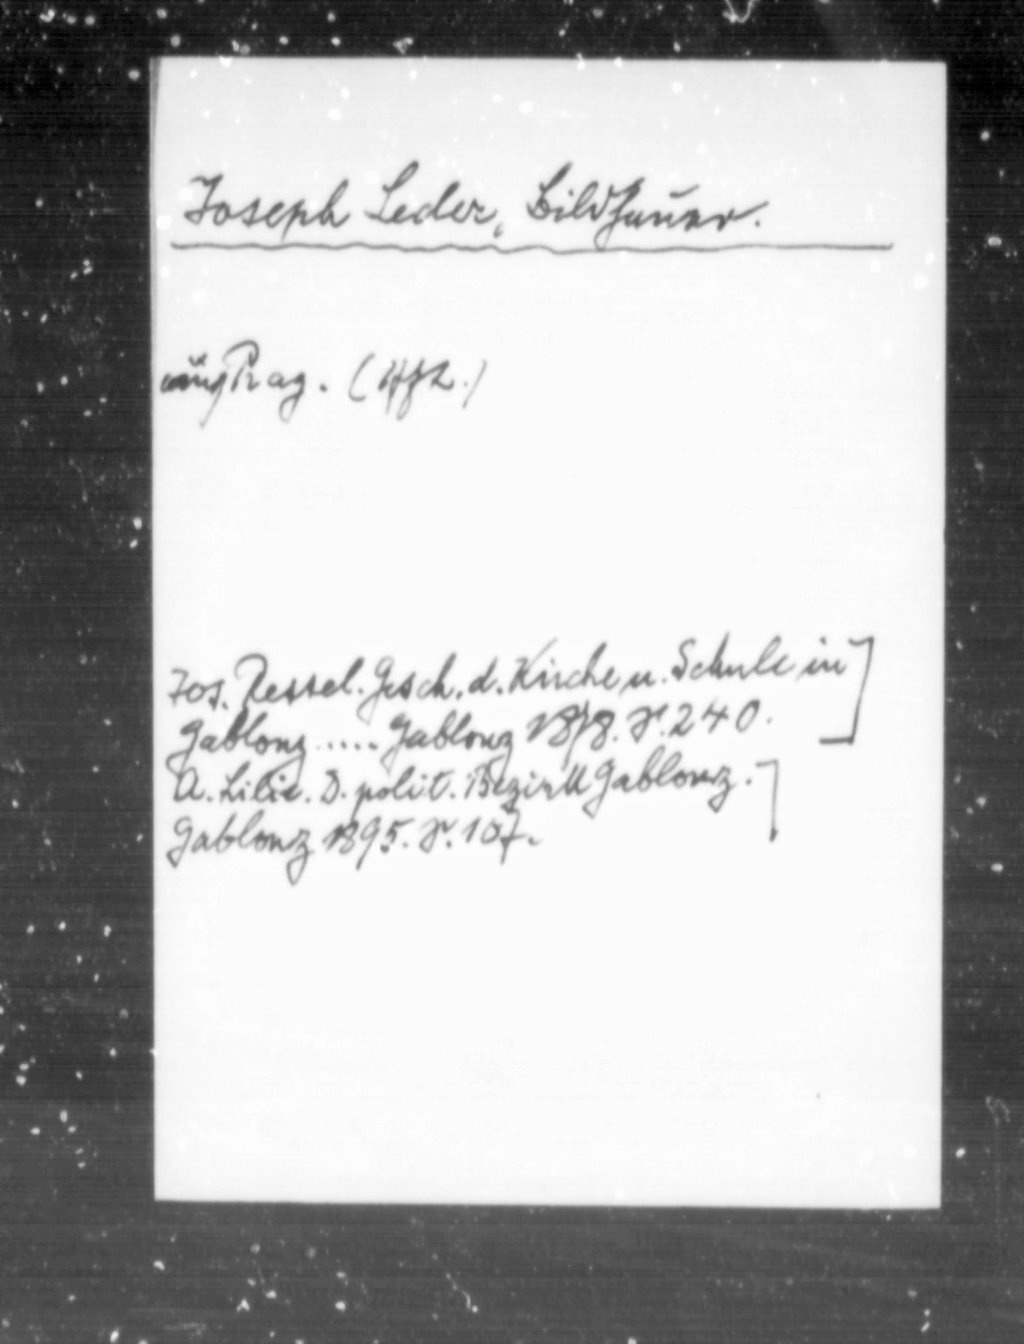 Joseph Leder, Bildhauer.
aus Prag. (1782.)
Jos. Ressel. Gesch. d. Kirche u. Schule in
Gablonz ..... Gablonz 1878. S. 240.
A. Lilie. D. polit. Bezirk Gablonz.
Gablonz 1895. S. 107.